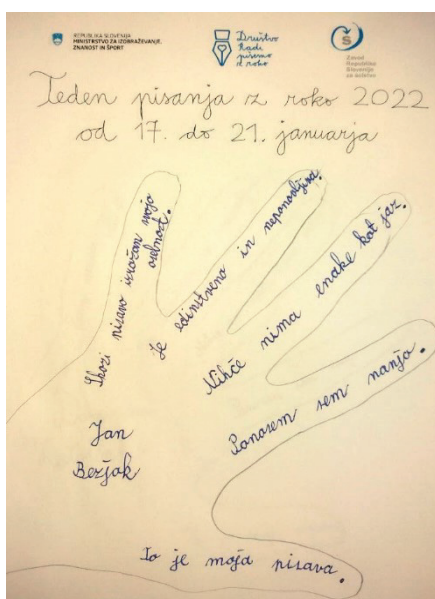 REPUBLIKA SLOVENIJA
MINISTRSTVO ZA IZOBRAŽEVANJE,
ZNANOST IN ŠPORT
Društvo
Radi
pišemo
z roko
Zavod
Republike
Slovenije
za šolstvo
Teden pisanja z roko 2022
od 17. do 21. januarja
Skozi pisavo izražam svojo
osebnost.
Je edinstvena in neponovljiva.
Nihče nima enake kot jaz.
Ponosen sem nanjo.
Jan
Bezjak
To je moja pisava.